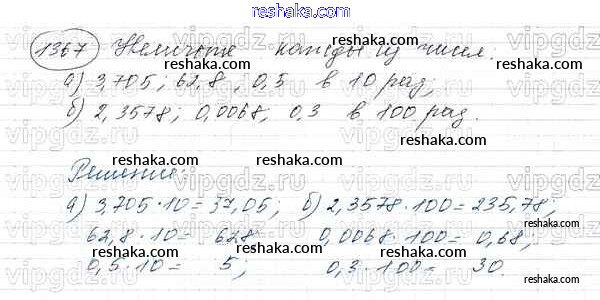 reshaka.com
1367 Увеличьте каждое из чисел:
а) 3,705; 62,8; 0,5 в 10 раз;
б) 2,3578; 0,0068; 0,3 в 100 раз.
Решение:
а) 3,705·10=37,05; б) 2,3578·100=235,78;
62,8·10= 628 0,0068·100= 0,68;
0,5·10= 5; 0,3·100= 30.